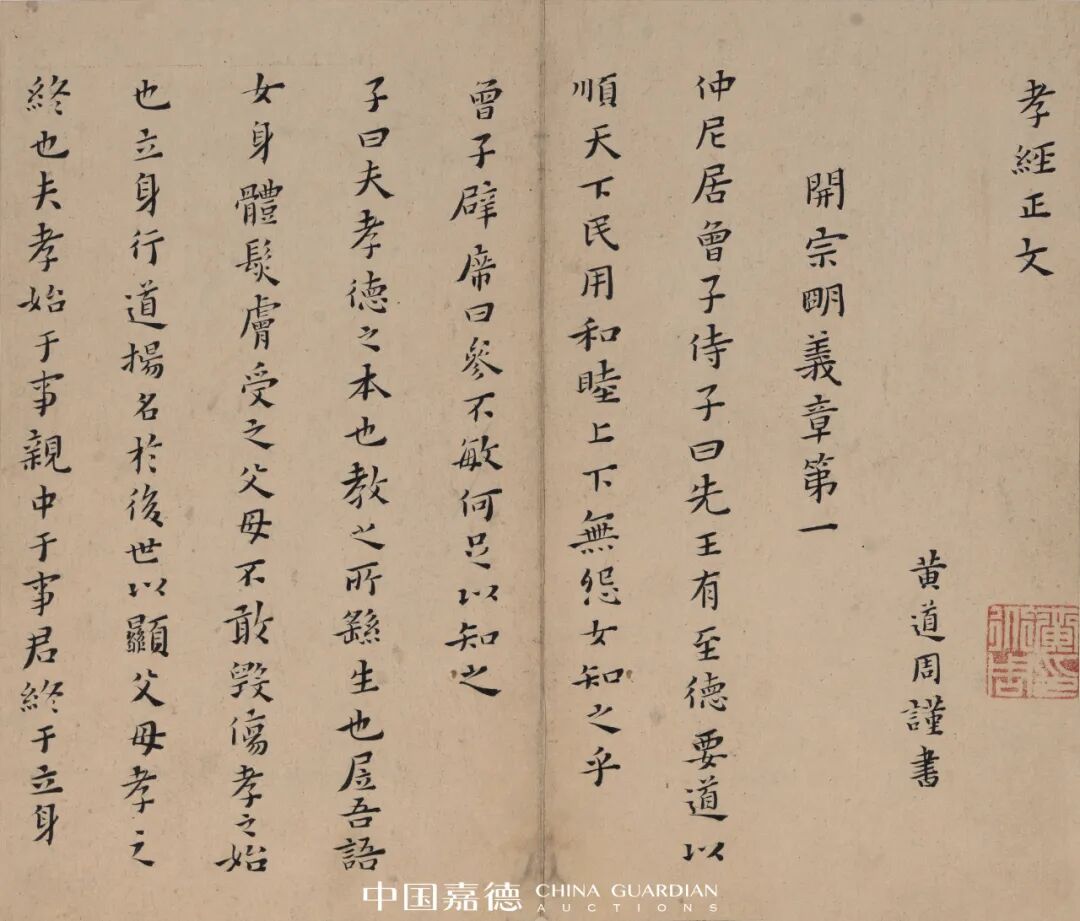 孝經正文
黄道周謹書
開宗明義章第一
仲尼居曾子侍子曰先王有至德要道以
順天下民用和睦上下無怨女知之乎
曾子辟席曰參不敏何足以知之
子曰夫孝德之本也教之所繇生也凥吾語
女身體髮膚受之父母不敢毀傷孝之始
也立身行道揚名於後世以顯父母孝之
終也夫孝始于事親中于事君終于立身
中国嘉德 CHINA GUARDIAN
AUCTIONS